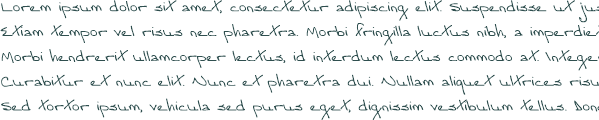 Lorem ipsum dolor sit amet, consectetur adipiscing elit. Suspendisse ut jus
Etiam tempor vel risus nec pharetra. Morbi fringilla luctus nibh, a imperdie
Morbi hendrerit ullamcorper lectus, id interdum lectus commodo at. Intege
Curabitur et nunc elit. Nunc et pharetra dui. Nullam aliquet ultrices risu
Sed tortor ipsum, vehicula sed purus eget, dignissim vestibulum tellus. Done